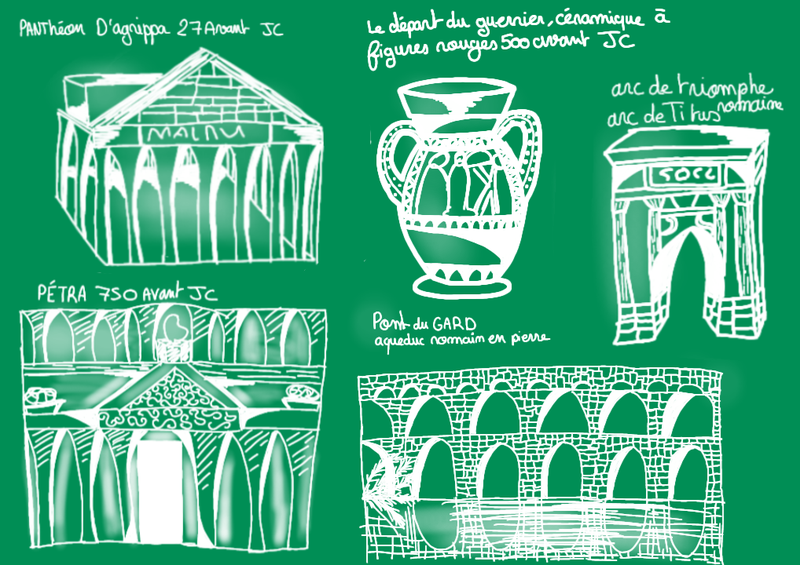 PANThéon D'agrippa 27 Avant JC
Le départ du guerrier, céramique à
figures rouges 500 avant JC
arc de triomphe
romaine
arc de Titus
MALRU
SOCL
PÉTRA 750 Avant JC
Pont du GARD
aqueduc romain en pierre